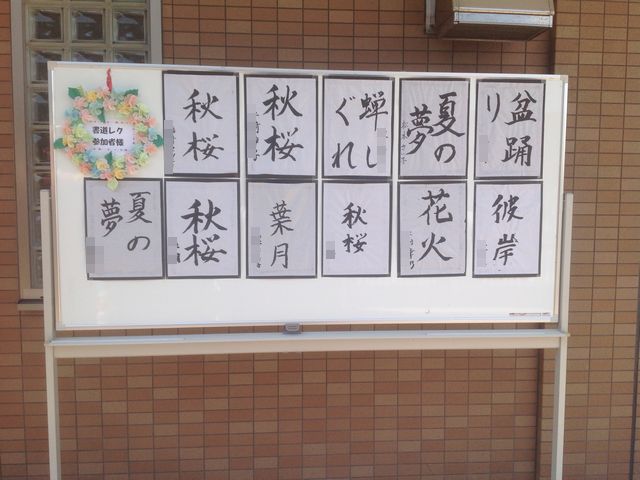 書道レク
参加者様
秋桜
秋桜
蝉し
ぐれ
夏の
夢
盆踊
り
夏の
夢
秋桜
葉月
秋桜
花火
彼岸